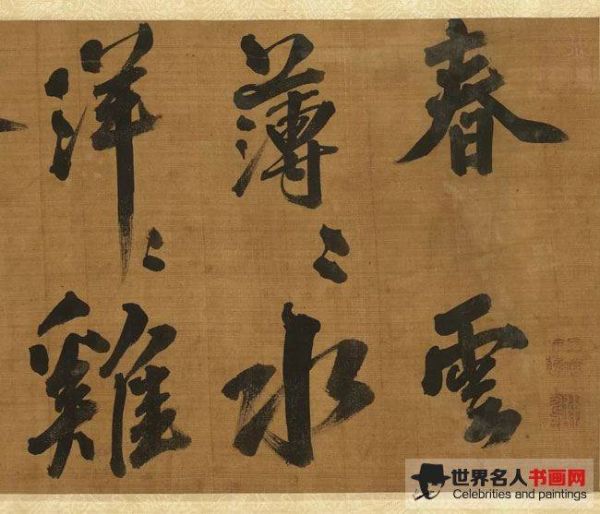 春雲
薄〻水
洋〻雞
世界名人书画网
Celebrities and paintings